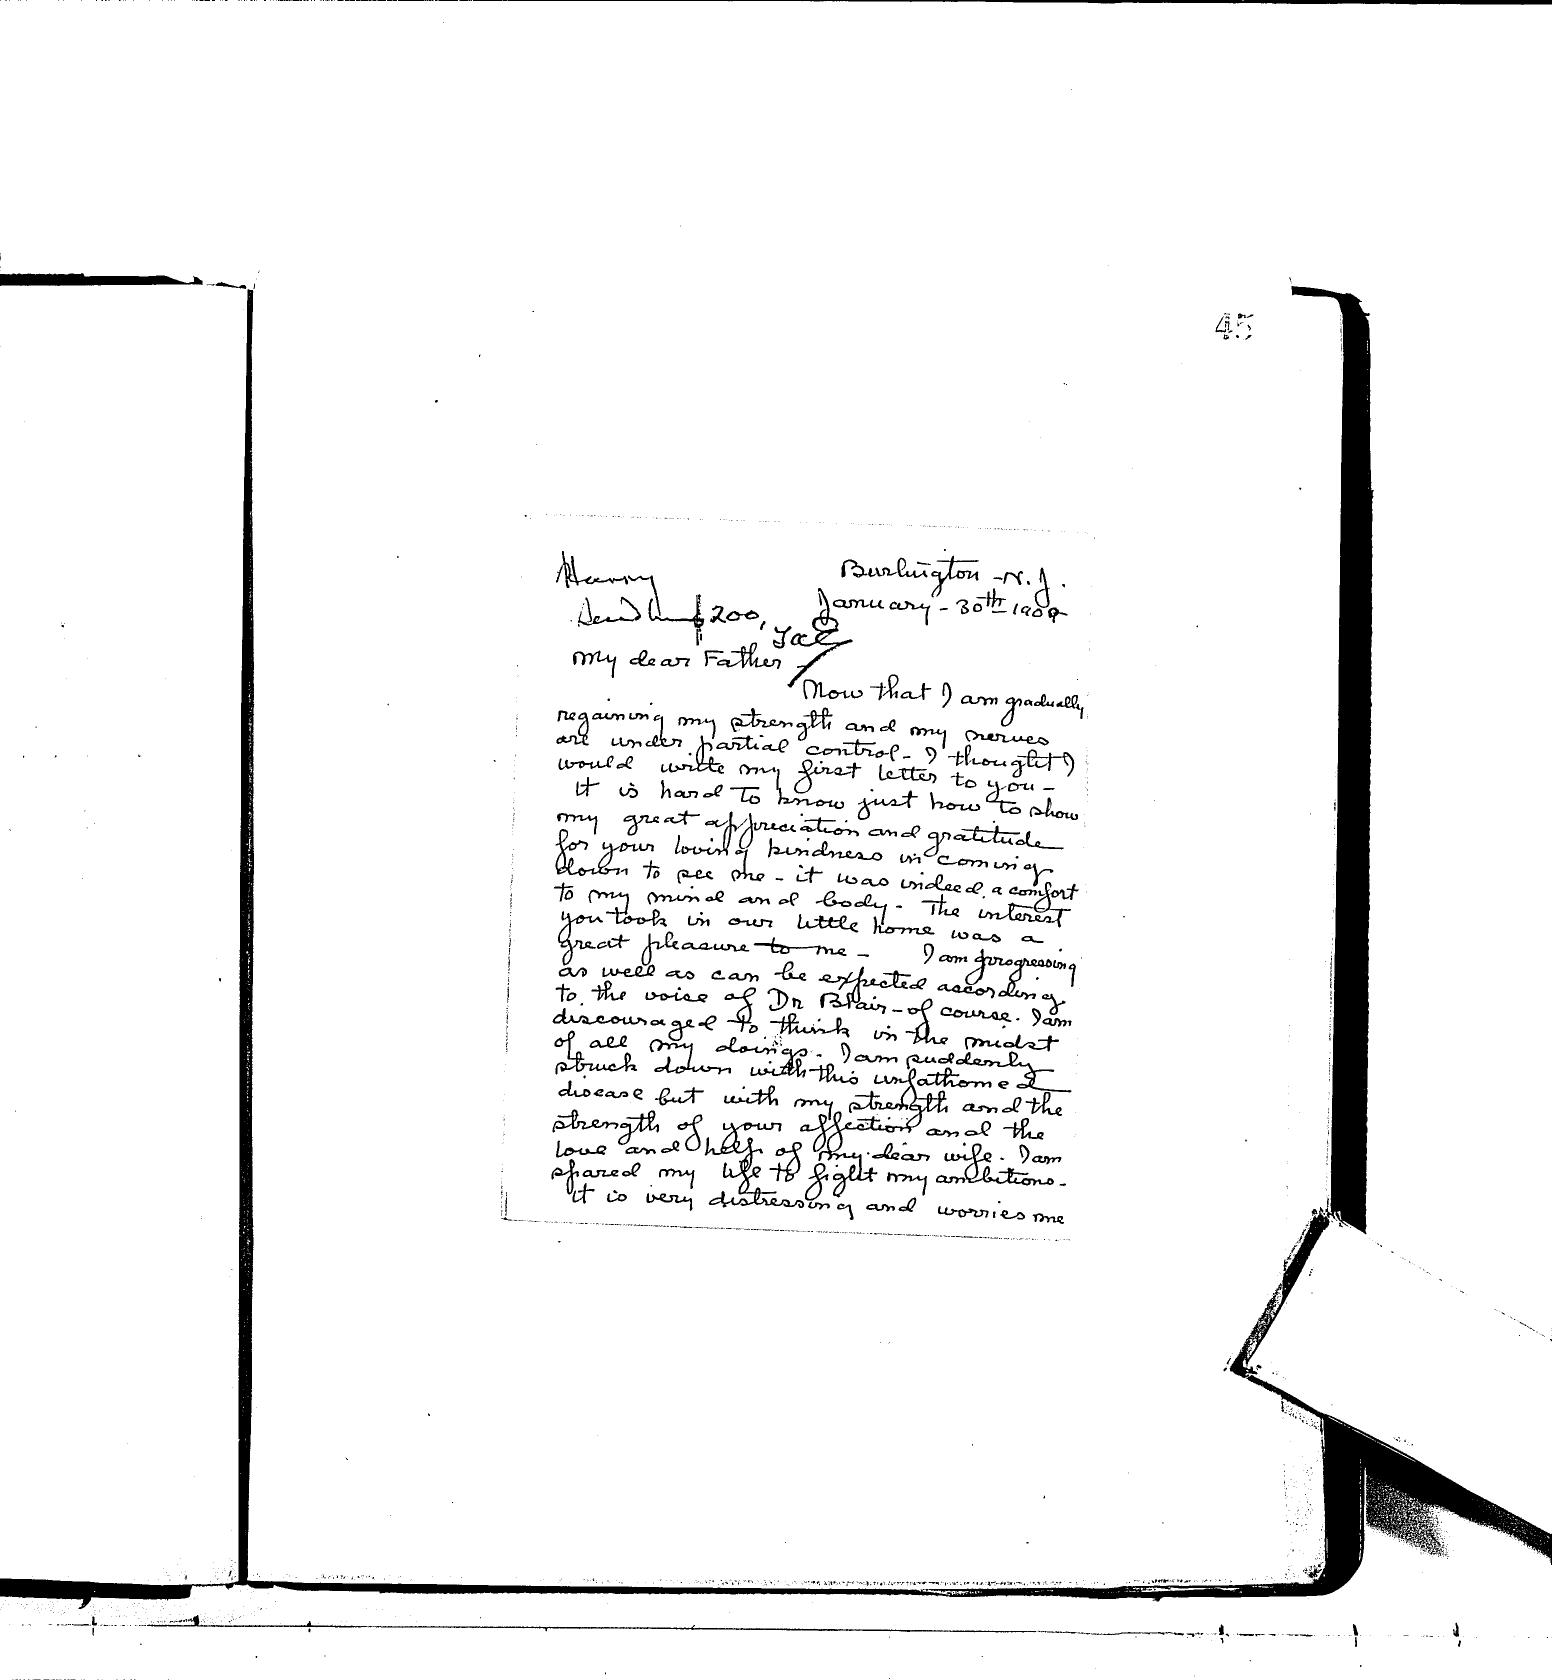 45
Harry
Send him $200,
TAE
Burlington - N.J.
January - 30th 1909
My dear Father -
Now that I am gradually
regaining my strength and my nerves
are under partial control - I thought I
would write my first letter to you -
It is hard to know just how to show
my great appreciation and gratitude
for your loving kindness in coming
down to see me - it was indeed a comfort
to my mind and body - The interest
you took in our little home was a
great pleasure to me - I am progressing
as well as can be expected according
to the voice of Dr Blair - of course. I am
discouraged to think in the midst
of all my doings. I am suddenly
struck down with this unfathomed
disease but with my strength and the
strength of your affection and the
love and help of my dear wife. I am
spared my life to fight my ambitions -
It is very distressing and worries me